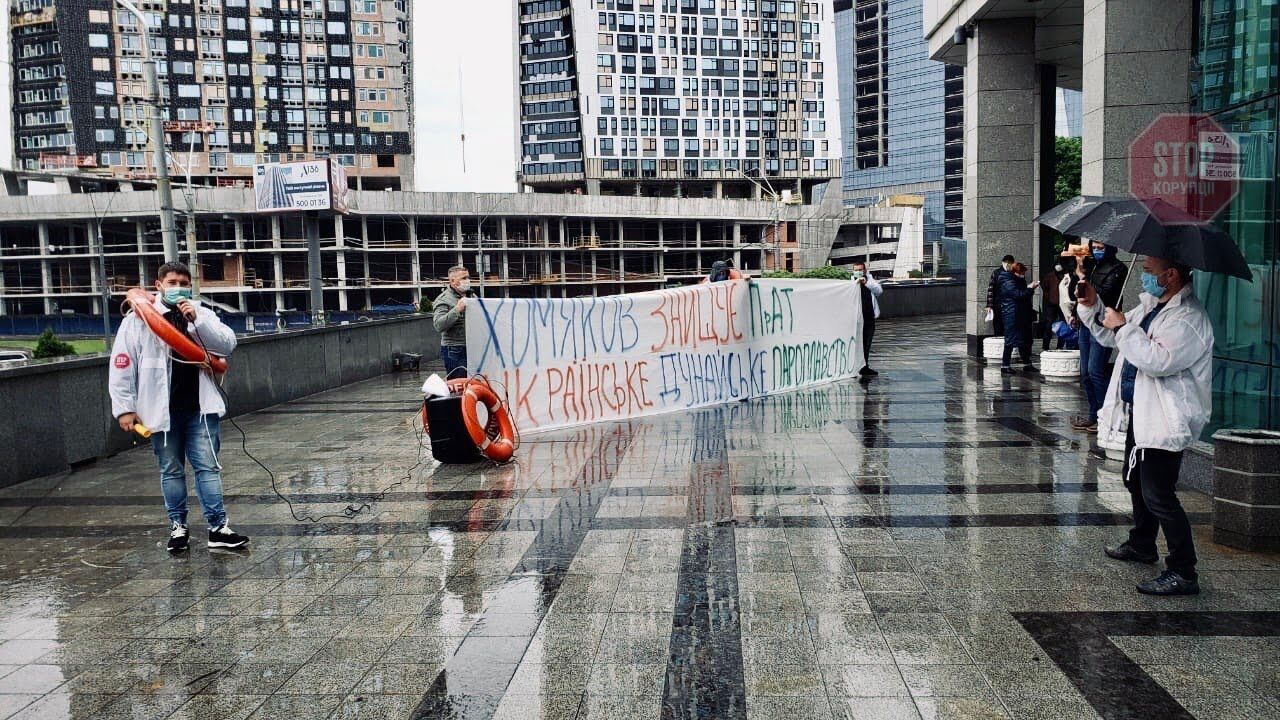 ХОМЯКОВ ЗНИЩУЄ ПРАТ
УКРАЇНСЬКЕ ДУНАЙСЬКЕ ПАРОПЛАВСТВО
А136
500 01 36
STOP
КОРУПЦІЇ